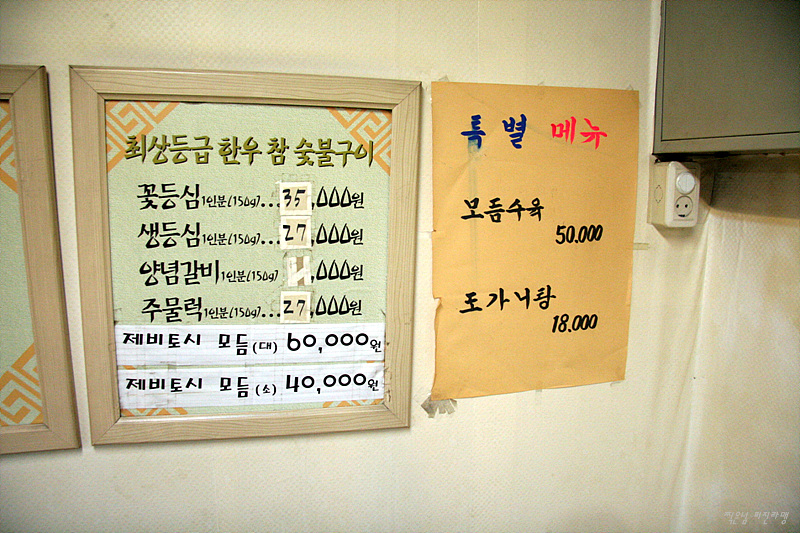 최상등급 한우 참 숯불구이
꽃등심 1인분(150g)...35,000원
생등심 1인분(150g)...27,000원
양념갈비 1인분(150g) ,000원
주물럭 1인분(150g)...27,000원
제비토시 모듬 (대) 60,000원
제비토시 모듬 (소) 40,000원
특별 메뉴
모듬수육
50.000
도가니탕
18.000